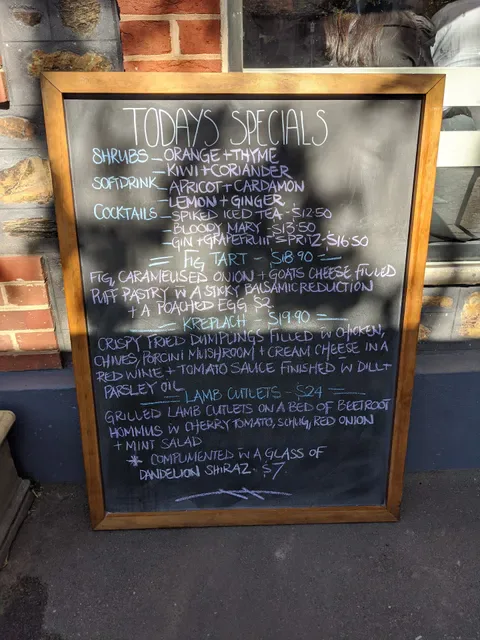 TODAYS SPECIALS
SHRUBS - ORANGE + THYME
- KIWI + CORIANDER
SOFTDRINK - APRICOT + CARDAMON
- LEMON + GINGER
COCKTAILS - SPIKED ICED TEA - $12.50
- BLOODY MARY - $13.50
- GIN + GRAPEFRUIT SPRITZ - $16.50
= FIG TART - $18.90 =
FIG, CARAMELISED ONION + GOATS CHEESE FILLED
PUFF PASTRY W A STICKY BALSAMIC REDUCTION
+ A POACHED EGG $2
= KREPLACH - $19.90 =
CRISPY FRIED DUMPLINGS FILLED W CHICKEN,
CHIVES, PORCINI MUSHROOM + CREAM CHEESE IN A
RED WINE + TOMATO SAUCE FINISHED W DILL +
PARSLEY OIL
= LAMB CUTLETS - $24 =
GRILLED LAMB CUTLETS ON A BED OF BEETROOT
HOMMUS W CHERRY TOMATO, SCHUG, RED ONION
+ MINT SALAD
* COMPLIMENTED W A GLASS OF
DANDELION SHIRAZ - $7